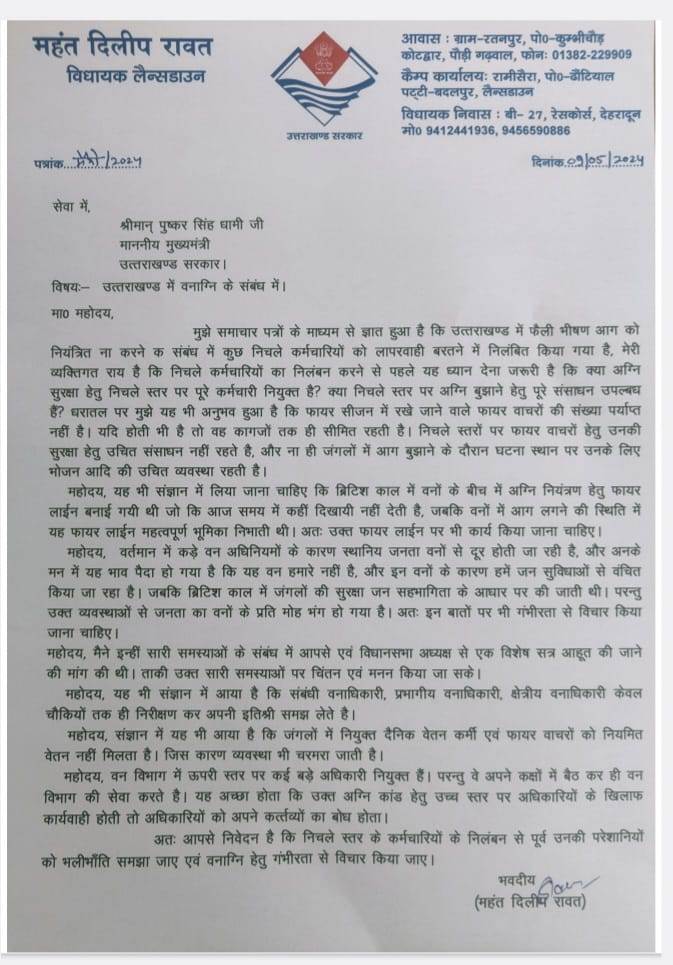 महंत दिलीप रावत
विधायक लैन्सडाउन
उत्तराखण्ड सरकार
आवास : ग्राम-रतनपुर, पो0-कुम्भीचौड़
कोटद्वार, पौड़ी गढ़वाल, फोनः 01382-229909
कैम्प कार्यालयः रामीसैरा, पो0-ढौंटियाल
पट्टी-बदलपुर, लैन्सडाउन
विधायक निवास : बी- 27, रेसकोर्स, देहरादून
मो0 9412441936, 9456590886
पत्रांक.../2024
दिनांक.09/05/2024
सेवा में,
श्रीमान् पुष्कर सिंह धामी जी
माननीय मुख्यमंत्री
उत्तराखण्ड सरकार।
विषयः– उत्तराखण्ड में वनाग्नि के संबंध में।
मा0 महोदय,
मुझे समाचार पत्रों के माध्यम से ज्ञात हुआ है कि उत्तराखण्ड में फैली भीषण आग को
नियंत्रित ना करने क संबंध में कुछ निचले कर्मचारियों को लापरवाही बरतने में निलंबित किया गया है, मेरी
व्यक्तिगत राय है कि निचले कर्मचारियों का निलंबन करने से पहले यह ध्यान देना जरूरी है कि क्या अग्नि
सुरक्षा हेतु निचले स्तर पर पूरे कर्मचारी नियुक्त है? क्या निचले स्तर पर अग्नि बुझाने हेतु पूरे संसाधन उपलब्ध
हैं? धरातल पर मुझे यह भी अनुभव हुआ है कि फायर सीजन में रखे जाने वाले फायर वाचरों की संख्या पर्याप्त
नहीं है। यदि होती भी है तो वह कागजों तक ही सीमित रहती है। निचले स्तरों पर फायर वाचरों हेतु उनकी
सुरक्षा हेतु उचित संसाधन नहीं रहते है, और ना ही जंगलों में आग बुझाने के दौरान घटना स्थान पर उनके लिए
भोजन आदि की उचित व्यवस्था रहती है।
महोदय, यह भी संज्ञान में लिया जाना चाहिए कि ब्रिटिश काल में वनों के बीच में अग्नि नियंत्रण हेतु फायर
लाईन बनाई गयी थी जो कि आज समय में कहीं दिखायी नहीं देती है, जबकि वनों में आग लगने की स्थिति में
यह फायर लाईन महत्वपूर्ण भूमिका निभाती थी। अतः उक्त फायर लाईन पर भी कार्य किया जाना चाहिए।
महोदय, वर्तमान में कड़े वन अधिनियमों के कारण स्थानिय जनता वनों से दूर होती जा रही है, और अनके
मन में यह भाव पैदा हो गया है कि यह वन हमारे नहीं है, और इन वनों के कारण हमें जन सुविधाओं से वंचित
किया जा रहा है। जबकि ब्रिटिश काल में जंगलों की सुरक्षा जन सहभागिता के आधार पर की जाती थी। परन्तु
उक्त व्यवस्थाओं से जनता का वनों के प्रति मोह भंग हो गया है। अतः इन बातों पर भी गंभीरता से विचार किया
जाना चाहिए।
महोदय, मैने इन्हीं सारी समस्याओं के संबंध में आपसे एवं विधानसभा अध्यक्ष से एक विशेष सत्र आहूत की जाने
की मांग की थी। ताकी उक्त सारी समस्याओं पर चिंतन एवं मनन किया जा सके।
महोदय, यह भी संज्ञान में आया है कि संबंधी वनाधिकारी, प्रभागीय वनाधिकारी, क्षेत्रीय वनाधिकारी केवल
चौकियों तक ही निरीक्षण कर अपनी इतिश्री समझ लेते है।
महोदय, संज्ञान में यह भी आया है कि जंगलों में नियुक्त दैनिक वेतन कर्मी एवं फायर वाचरों को नियमित
वेतन नहीं मिलता है। जिस कारण व्यवस्था भी चरमरा जाती है।
महोदय, वन विभाग में ऊपरी स्तर पर कई बड़े अधिकारी नियुक्त हैं। परन्तु वे अपने कक्षों में बैठ कर ही वन
विभाग की सेवा करते है। यह अच्छा होता कि उक्त अग्नि कांड हेतु उच्च स्तर पर अधिकारियों के खिलाफ
कार्यवाही होती तो अधिकारियों को अपने कर्त्तव्यों का बोध होता।
अतः आपसे निवेदन है कि निचले स्तर के कर्मचारियों के निलंबन से पूर्व उनकी परेशानियों
को भलीभाँति समझा जाए एवं वनाग्नि हेतु गंभीरता से विचार किया जाए।
भवदीय
(महंत दिलीप रावत)